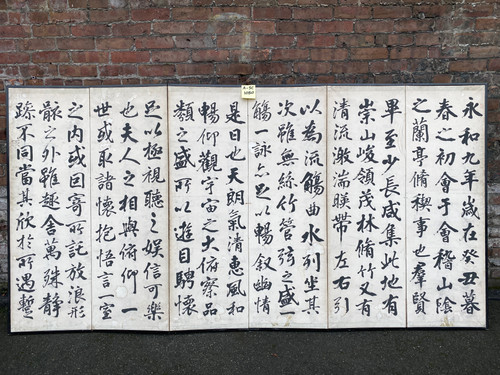 永和九年歲在癸丑暮
春之初會于會稽山陰
之蘭亭脩稧事也羣賢
畢至少長咸集此地有
崇山峻領茂林脩竹又有
清流激湍暎帶左右引
以為流觴曲水列坐其
次雖無絲竹管弦之盛一
觴一詠亦足以暢敘幽情
是日也天朗氣清惠風和
暢仰觀宇宙之大俯察品
類之盛所以遊目騁懷
足以極視聽之娛信可樂
也夫人之相與俯仰一
世或取諸懷抱悟言一室
之內或因寄所託放浪形
骸之外雖趣舍萬殊靜
躁不同當其欣於所遇蹔